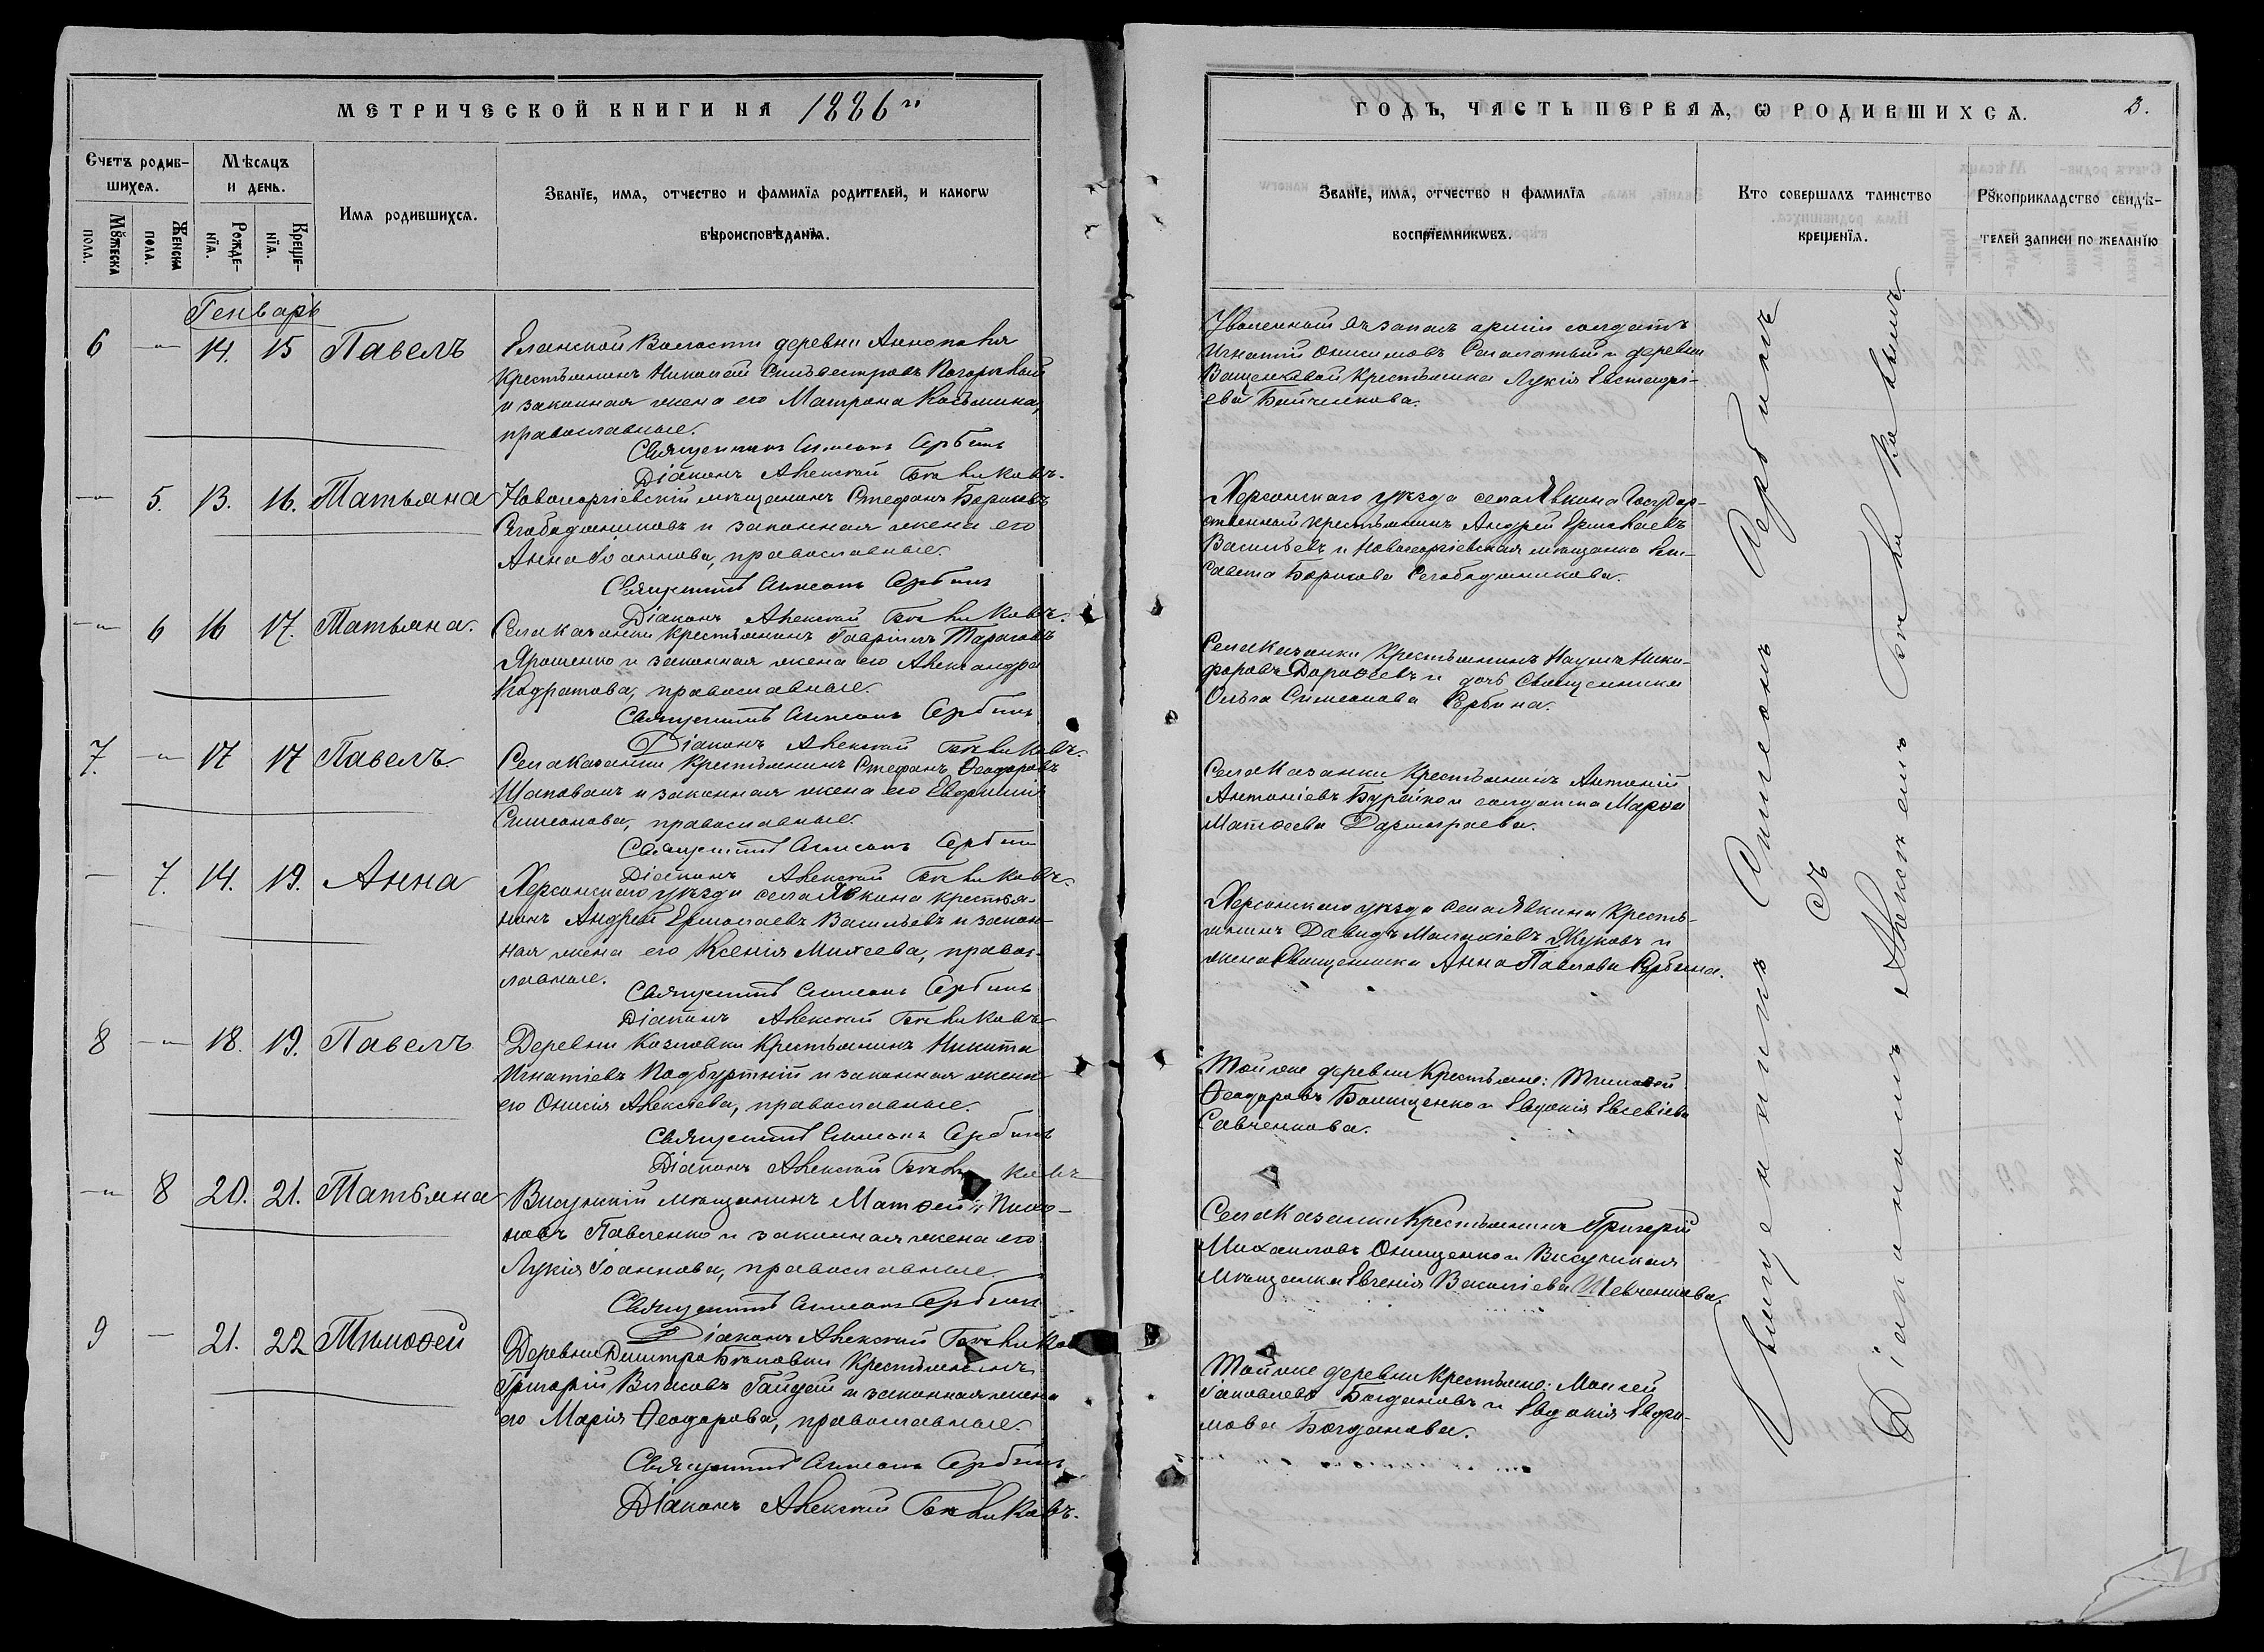 МЕТРИЧЕСКОЙ КНИГИ НА 1886 й
Счетъ родив-
шихся.
Мѣсяцъ
и день.
Имя родившихся.
Званїе, имя, отчество и фамилїя родителей, и какогѡ
вѣроисповѣданїя.
Мꙋжеска
пола.
Женска
пола.
Рожде-
нїя.
Креще-
нїя.
Генварь
6 —"— 14. 15 Павелъ
Еланской Волости деревни
Крестьянинъ Николай Сильвестровъ
и законная жена его Матрона Козьмина,
православные.
Священникъ Симеонъ Сербинъ
Діаконъ Алексій
—"— 5. 13. 16. Татьяна
Новогеоргіевскій мѣщанинъ Стефанъ Борисовъ
Слободяниковъ и законная жена его
Анна Іоаннова, православные.
Священникъ Симеонъ Сербинъ
Діаконъ Алексій
—"— 6 16 17. Татьяна.
Села Казанки крестьянинъ Гавріилъ Тарасовъ
Ярошенко и законная жена его Александра
Кодратова, православные.
Священникъ Симеонъ Сербинъ
Діаконъ Алексій
7. —"— 17 17 Павелъ
Села Казанки Крестьянинъ Стефанъ Ѳеодоровъ
Шаповалъ и законная жена его Евфимія
Симеонова, православные.
Священникъ Симеонъ Сербинъ
Діаконъ Алексій
— 7. 14. 19. Анна
Херсонскаго уѣзда села Явкина крестья-
нинъ Андрей Ермолаевъ Васильевъ и закон-
ная жена его Ксенія Михеева, правос-
лавные.
Священникъ Симеонъ Сербинъ
Діаконъ Алексій
8 —"— 18. 19. Павелъ
Деревни Козловки Крестьянинъ Никита
Игнатіевъ и законная жена
его Онисія Алексѣева, православные.
Священникъ Симеонъ Сербинъ
Діаконъ Алексій
—"— 8 20. 21. Татьяна
Висунскій мѣщанинъ Матѳей
Павленко и законная жена его
Лукія Іоаннова, православные.
Священникъ Симеонъ Сербинъ
Діаконъ Алексій
9 — 21. 22 Тимоѳей
Деревни Крестьянинъ
Григорій Власовъ Гайдей и законная жена
его Марія Ѳеодорова, православные.
Священникъ Симеонъ Сербинъ
Діаконъ Алексій
ГОДЪ, ЧАСТЬ ПЕРВАЯ, Ѡ РОДИВШИХСЯ. 3.
Званїе, имя, отчество и фамилїя
воспрїемникѡвъ.
Кто совершалъ таинство
крещенїя.
Рꙋкоприкладство свидѣ-
телей записи по желанїю
Уволенный въ запасъ арміи солдатъ
Игнатій Онисимовъ и деревни
Крестьянка Лукія Евстафі-
ева
Херсонскаго уѣзда села Явкина Государ-
ственный крестьянинъ Андрей Ермолаевъ
Васильевъ и Новогеоргіевская мѣщанка Ели-
савета Борисова Слободяникова.
Села Казанки Крестьянинъ Наумъ Ники-
форовъ Дороѳеевъ и дочь Священника
Ольга Симеонова Сербина.
Села Казанки Крестьянинъ Антоній
Антоніевъ Бурейко и солдатка Марѳа
Матѳеева
Херсонскаго уѣзда села Явкина Кресть-
янинъ Давидъ Малахіевъ Жуковъ и
жена Священника Анна Павлова Сербина.
Той же деревни Крестьяне: Тимоѳей
Ѳеодоровъ и Евдокія Евсевіева
Савченкова.
Села Казанки Крестьянинъ Григорій
Михаиловъ Онищенко и Висунская
мѣщанка Евгенія Василіева Шевченкова.
Той же деревни Крестьяне: Моисей
Іаковлевъ Богдановъ и Евдокія Евфи-
мова Богданова.
Священникъ Симеонъ Сербинъ
съ
Діакономъ Алексѣемъ